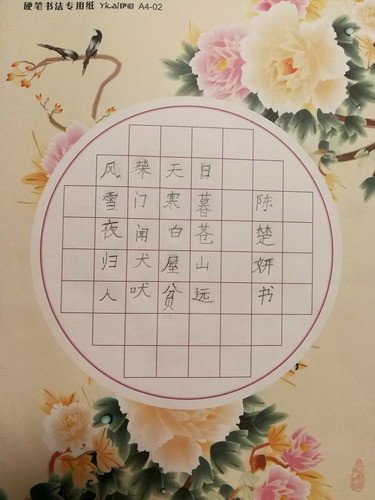 硬笔书法专用纸 Ykai伊彩 A4-02
日暮苍山远
天寒白屋贫
柴门闻犬吠
风雪夜归人
陈楚妍书